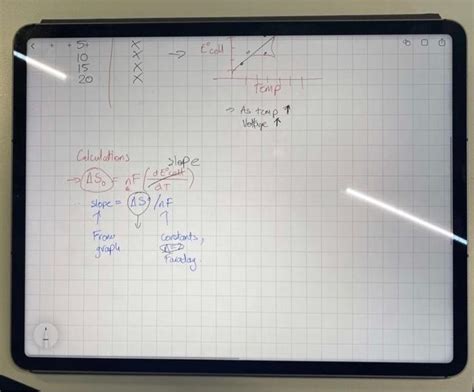 5+ X
10 X
15 X
20 X
→ E°cell
Temp
→ As temp ↑
Voltage ↑
Calculations
slope
→ ΔS₀ = nF (dE°cell/dT)
slope = ΔS°/nF
↑ ↓ ↑
From graph
Constants,
n=2
Faraday